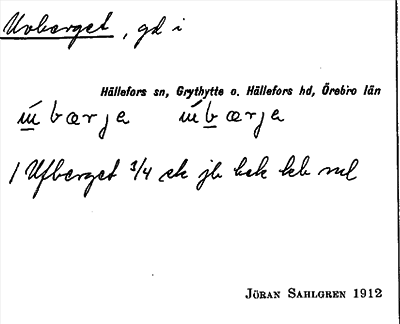 Uvberget, gd i
Hällefors sn, Grythytte o. Hällefors hd, Örebro län
bærja bærja
1 Ufberget 1/4 ek jb bek kb
JÖRAN SAHLGREN 1912